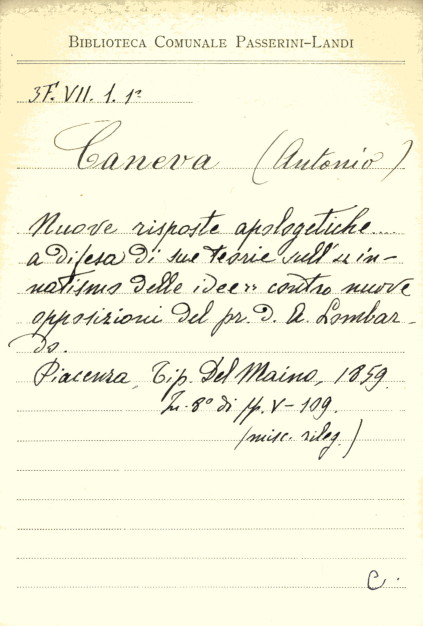 BIBLIOTECA COMUNALE PASSERINI-LANDI
3F. VII. 1. 1ª
Caneva (Antonio)
Nuove risposte apologetiche....
a difesa di sue teorie sull' "in-
natismo delle idee" contro nuove
opposizioni del pr. d. A. Lombar-
do.
Piacenza, Tip. Del Maino, 1859.
In-8° di pp. V-109.
(misc. rileg.)
C.